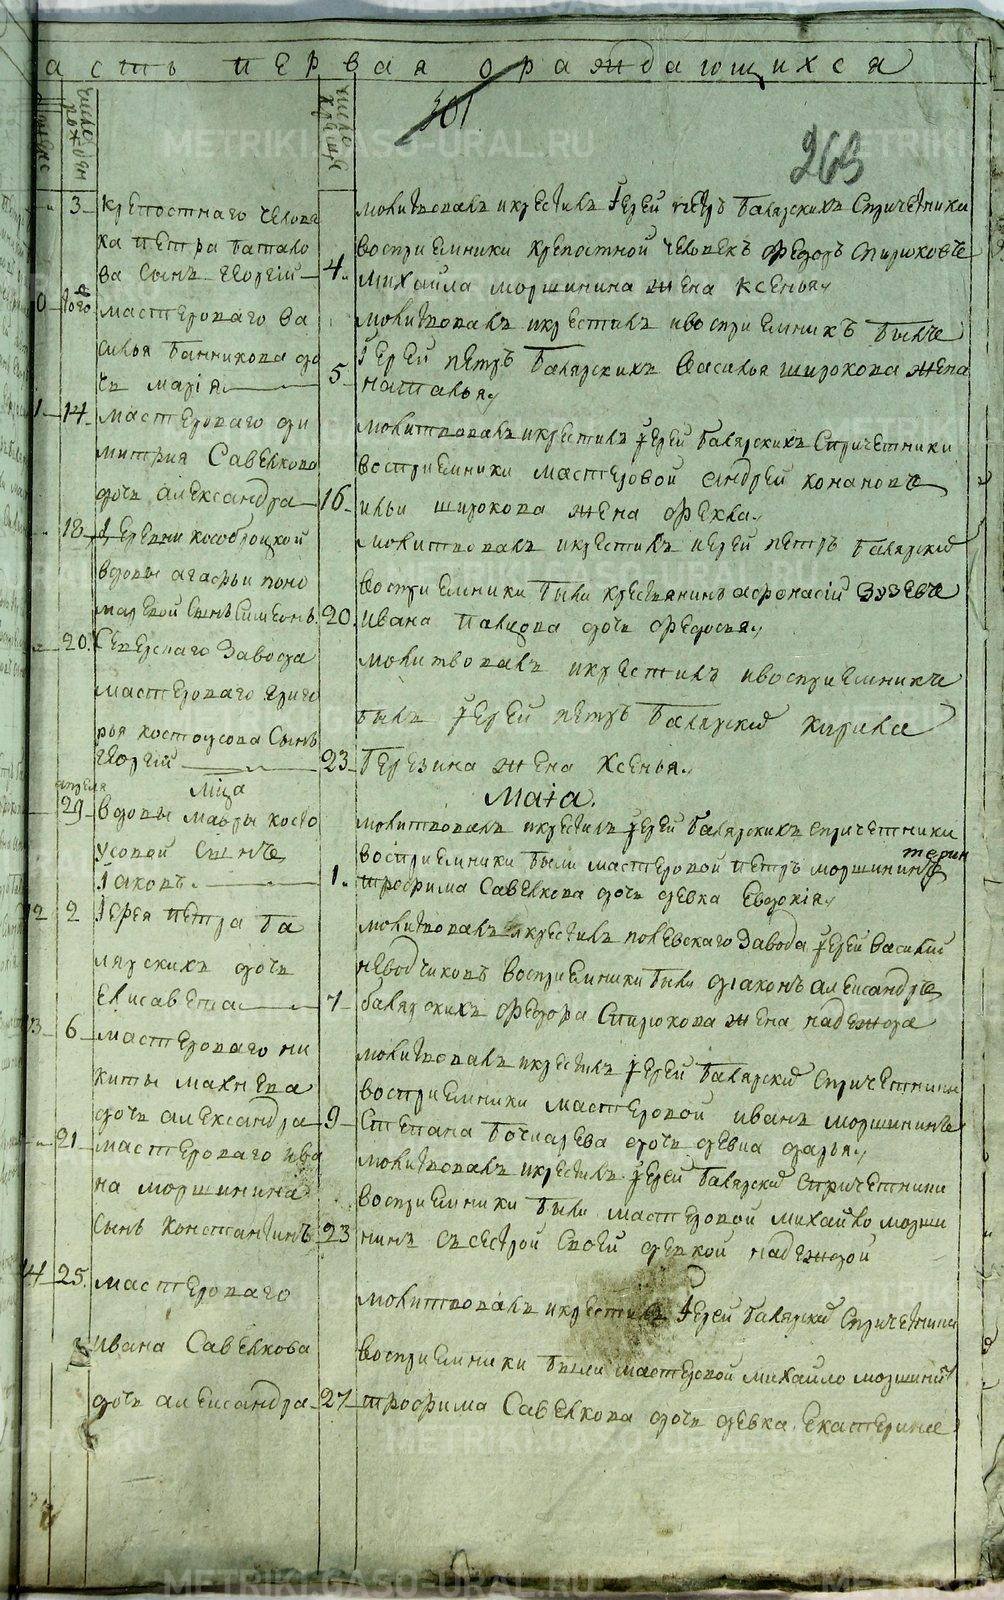 METRIKI.GASO-URAL.RU
асть первая ораждающихся
301
263
число рожден
число крещен
3 крепостнаго челове
ка петра батало
ва сынъ георгий 4
молитвовалъ икрестилъ Іерей петръ балярскихъ спричетники
восприемники крепостной человекъ федоръ спирюковъ
михайла моршинина жена ксенья
того мастероваго ва
силья банникова до
чь маріа 5
молитвовалъ икрестилъ ивосприемникъ былъ
Іерей петръ балярскихъ василья широкова жена
наталья
14 мастероваго ди
митрия савелкова
дочь александра 16
молитвовалъ икрестилъ Іерей балярскихъ спричетники
восприемники мастеровой андрей конаповъ
ильи широкова жена фекла
18 деревни кособродской
вдовы агафьи поно
маревой сынъ симеонъ 20
молитвовалъ икрестилъ иерей петръ балярский
восприемники были крестьянинъ афонасий зуевъ
ивана палцова дочь федосья
20 северскаго завода
мастероваго григо
рья костоусова сынъ
георгий 23
молитвовалъ икрестилъ ивосприемникъ
былъ Іерей петръ балярский кирила
березина жена ксенья
мца маіа
апреля
29 вдовы мавры косто
усовой сынъ
Іаковъ 1
молитвовалъ икрестилъ Іерей балярскихъ спричетники
восприемники были мастеровой петръ моршининъ
трофима савелкова дочь девка евдокія
12 2 Іерея петра ба
лярскихъ дочь
елисавета 7
молитвовалъ икрестилъ полевскаго завода Іерей василий
неводчиковъ восприемники были діаконъ александръ
балярскихъ федора спирюкова жена надежда
13 6 мастероваго ни
киты махнева
дочь александра 9
молитвовалъ икрестилъ Іерей балярский спричетники
восприемники мастеровой иванъ моршининъ
степана бочкарева дочь девка дарья
21 мастероваго ива
на моршинина
сынъ константинъ 23
молитвовалъ икрестилъ Іерей балярский спричетники
восприемники были мастеровой михайло морши
нинъ съ сестрой своей девкой надеждой
14 25 мастероваго
ивана савелкова
дочь александра 27
молитвовалъ икрестилъ Іерей балярский спричетники
восприемники были мастеровой михайло моршинин
трофима савелкова дочь девка екатерина
METRIKI.GASO-URAL.RU